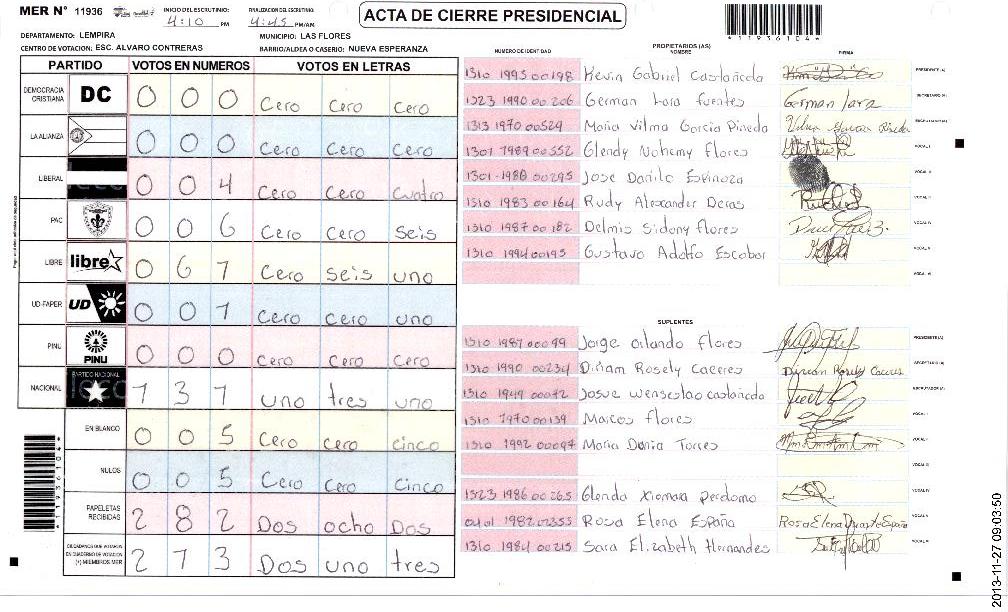 MER N° 11936 INICIO DEL ESCRUTINIO: 4:10 PM FINALIZACION DEL ESCRUTINIO: 4:45 PM/AM
ACTA DE CIERRE PRESIDENCIAL
*11936104*
DEPARTAMENTO: LEMPIRA MUNICIPIO: LAS FLORES
CENTRO DE VOTACION: ESC. ALVARO CONTRERAS BARRIO/ALDEA O CASERIO: NUEVA ESPERANZA
PARTIDO VOTOS EN NUMEROS VOTOS EN LETRAS
DEMOCRACIA CRISTIANA DC 0 0 0 Cero Cero Cero
LA ALIANZA 0 0 0 Cero Cero Cero
LIBERAL 0 0 4 Cero Cero Cuatro
PAC 0 0 6 Cero Cero Seis
LIBRE libre 0 6 1 Cero Seis uno
UD-FAPER UD 0 0 1 Cero Cero uno
PINU PINU 0 0 0 Cero Cero Cero
NACIONAL PARTIDO NACIONAL 1 3 1 uno tres uno
EN BLANCO 0 0 5 Cero Cero cinco
NULOS 0 0 5 Cero Cero Cinco
PAPELETAS RECIBIDAS 2 8 2 Dos ocho Dos
CIUDADANOS QUE VOTARON EN CUADERNO DE VOTACION (+) MIEMBROS MER 2 1 3 Dos uno tres
*11936104*
PROPIETARIOS (AS)
NUMERO DE IDENTIDAD NOMBRE FIRMA
1310 1995 00198 Kevin Gabriel Castañeda PRESIDENTE(A)
1323 1990 00206 German Lara fuentes German Lara SECRETARIO(A)
1313 1970 00529 Maria Vilma Garcia Pineda ESCRUTADOR(A)
1301 1989 00552 Glendy Nohemy flores VOCAL I
1301-1980 00295 Jose Danilo Espinoza VOCAL II
1310 1983 00164 Rudy Alexander Deras VOCAL III
1310 1987 00182 Delmis Sidony flores VOCAL IV
1310 1994 00195 Gustavo Adolfo Escobar VOCAL V
VOCAL VI
SUPLENTES
1310 1987 00099 Jorge orlando flores PRESIDENTE(A)
1310 1990 00234 Diriam Rosely Caceres Diriam Rosely Caceres SECRETARIO(A)
1310 1949 00072 Josue wenscolao castañeda ESCRUTADOR(A)
1310 1970 00139 Marcos flores VOCAL I
1310 1992 00097 Maria Dania Torres VOCAL II
VOCAL III
1323 1986 00265 Glenda Xiomara perdomo VOCAL IV
0401 1982 02355 Rosa Elena España Rosa Elena Duarte España VOCAL V
1310 1984 00215 Sara Elizabeth Hernandes VOCAL VI
2013-11-27 09:03:50